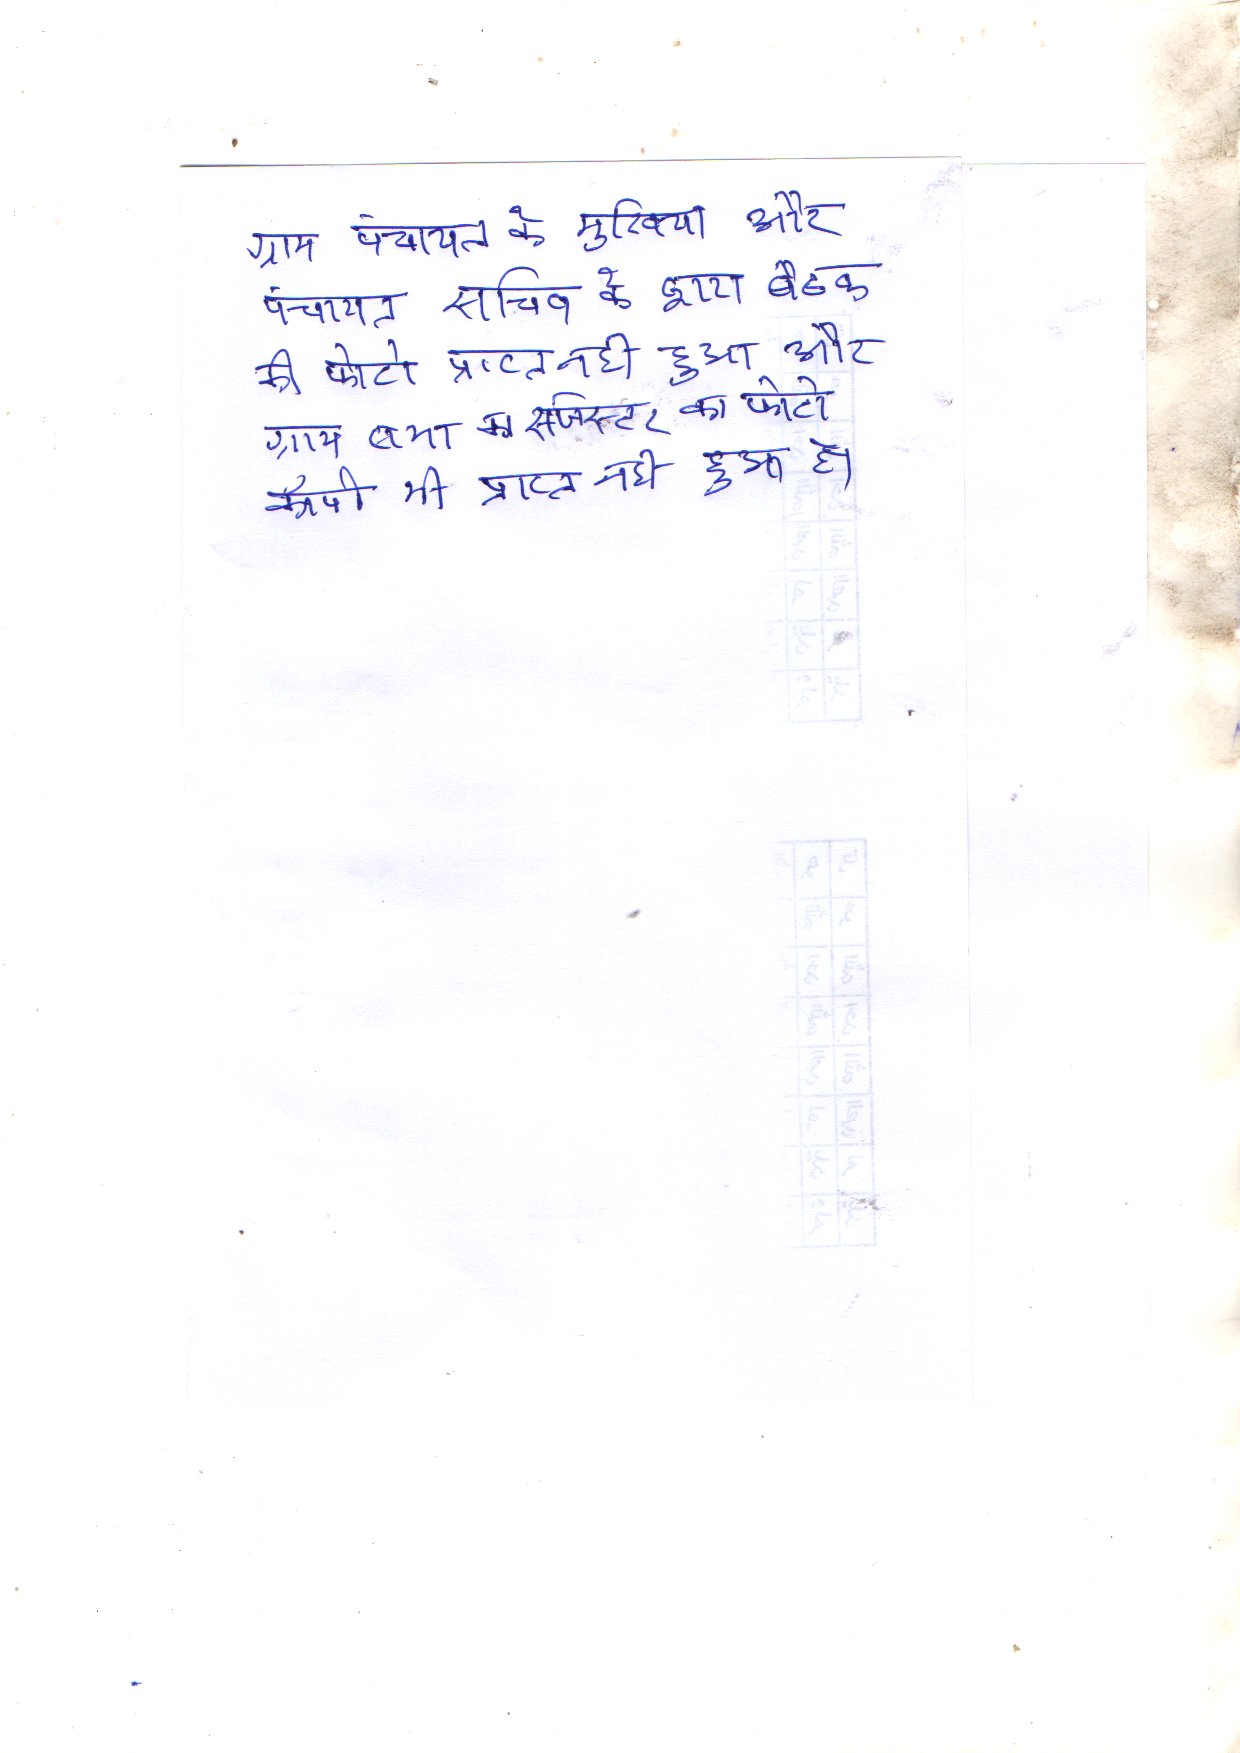 ग्राम पंचायत के मुखिया और
पंचायत सचिव के द्वारा बैठक
की फोटो प्राप्त नही हुआ और
ग्राम सभा का रजिस्टर का फोटो
कॉपी भी प्राप्त नही हुआ है।